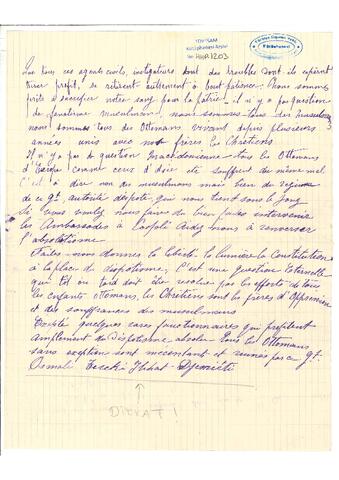 TÜSTAV
Kütüphanesi Arşivi
No: 
Que tous ces agents civils, instigateurs des troubles dont ils espèrent
tirer profit, se retirent autrement à bout patience. Nous sommes
prêts à sacrifier notre sang pour la patrie. il n'y a pas question
de fanatisme musulman, nous sommes tous des
nous sommes tous des Ottomans vivant depuis plusieurs
années unis avec nos frères les Chrétiens
Il n'y a pas de question macedonienne tous les Ottomans
d'Europe comme ceux d'Asie ont souffert du même mal
C'est à dire non des musulmans mais bien du régime
de ce gt. autorité despote, qui nous tient sous le joug
Si vous voulez nous faire du bien faites intervenir
les Ambassades à Constple Aidez nous à renverser
l'absolutisme
Faites-nous donner la liberté la lumière la Constitution
à la place du despotisme, C'est une question Eternelle
qui tôt ou tard doit être resolue par les efforts de tous
les enfants ottomans, les Chretiens sont les frères d'Oppression
et des souffrances des musulmans
Excepté quelques rares fonctionnaires qui profitent
amplement du despotisme absolu tous les Ottomans
sans exception sont mécontent et ruinés par ce gt.
Osmanli Terekki Ittihat-Djemiéti
DİKKAT!